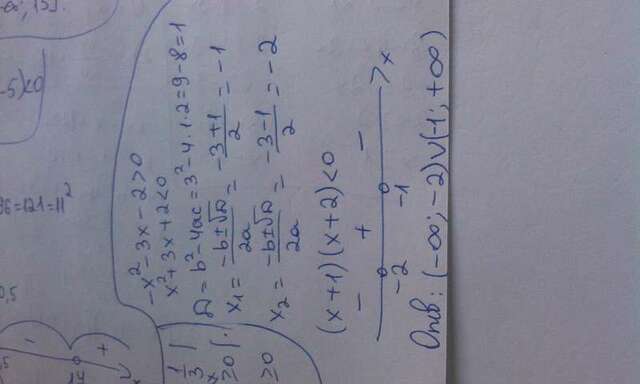 -∞; 15].
-5)<0
96=121=11²
0,5
- +
1/3
x
≥0
≥0
-x²-3x-2>0
x²+3x+2<0
D=b²-4ac=3²-4·1·2=9-8=1
x₁= (-b±√D)/2a = (-3+1)/2 = -1
x₂= (-b±√D)/2a = (-3-1)/2 = -2
(x+1)(x+2)<0
- + -
-2 -1 x
Отв: (-∞; -2)∪(-1; +∞)